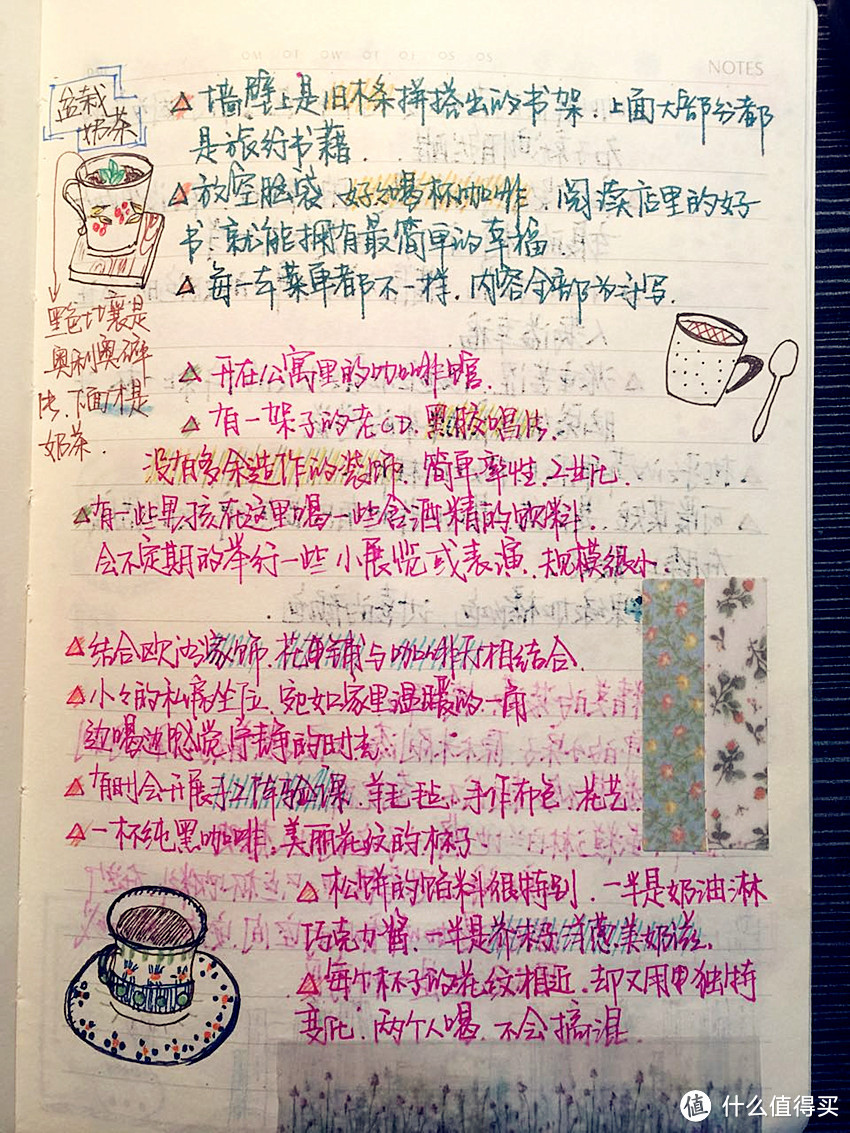 NOTES
盆栽
奶茶
△ 墙壁上是旧木条拼搭出的书架.上面大部分都
是旅行书籍.
△ 放空脑袋.好好喝杯咖啡.阅读店里的好
书.就能拥有最简单的幸福
△ 每一本菜单都不一样.内容全部为手写.
黑色土壤是
奥利奥碎
片.下面才是
奶茶.
△ 开在公寓里的咖啡馆.
△ 有一架子的老CD.黑胶唱片.
没有多余造作的装饰.简单率性.工业化.
△ 有一些男孩在这里喝一些含酒精的饮料.
会不定期的举行一些小展览或表演.规模很小.
△ 结合欧洲家饰.花店铺与咖啡厅相结合.
△ 小小的私房坐位.宛如家里温暖的一角
边喝边感觉宁静的时光.
△ 有时会开展手工体验课.羊毛毡.手作布包.花艺.
△ 一杯纯黑咖啡.美丽花纹的杯子.
△ 松饼的馅料很特别.一半是奶油淋
巧克力酱.一半是芥末籽洋葱美奶滋.
△ 每个杯子的花纹相近.却又用中独特
变化.两个人喝.不会搞混.
值 什么值得买